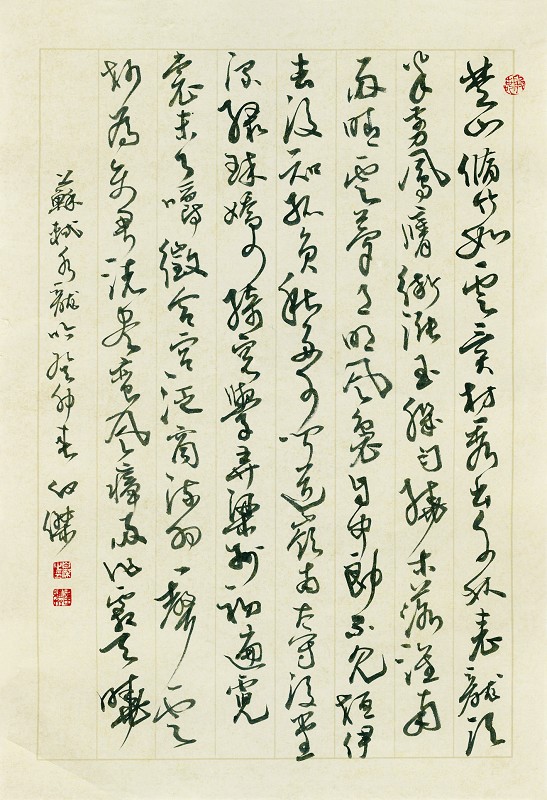 楚山脩竹如雲異材秀出千林表龍須
半剪鳳膺微漲玉肌勻繞木落淮南
雨晴雲夢月明風裊自中郎不見桓伊
去後知孤負秋多少聞道嶺南太守後堂
深綠珠嬌小綺窗學弄梁州初遍霓
裳未了嚼徵含宮泛商流羽一聲雲
杪為使君洗盡蠻風瘴雨作霜天曉
蘇軾水龍吟癸卯春